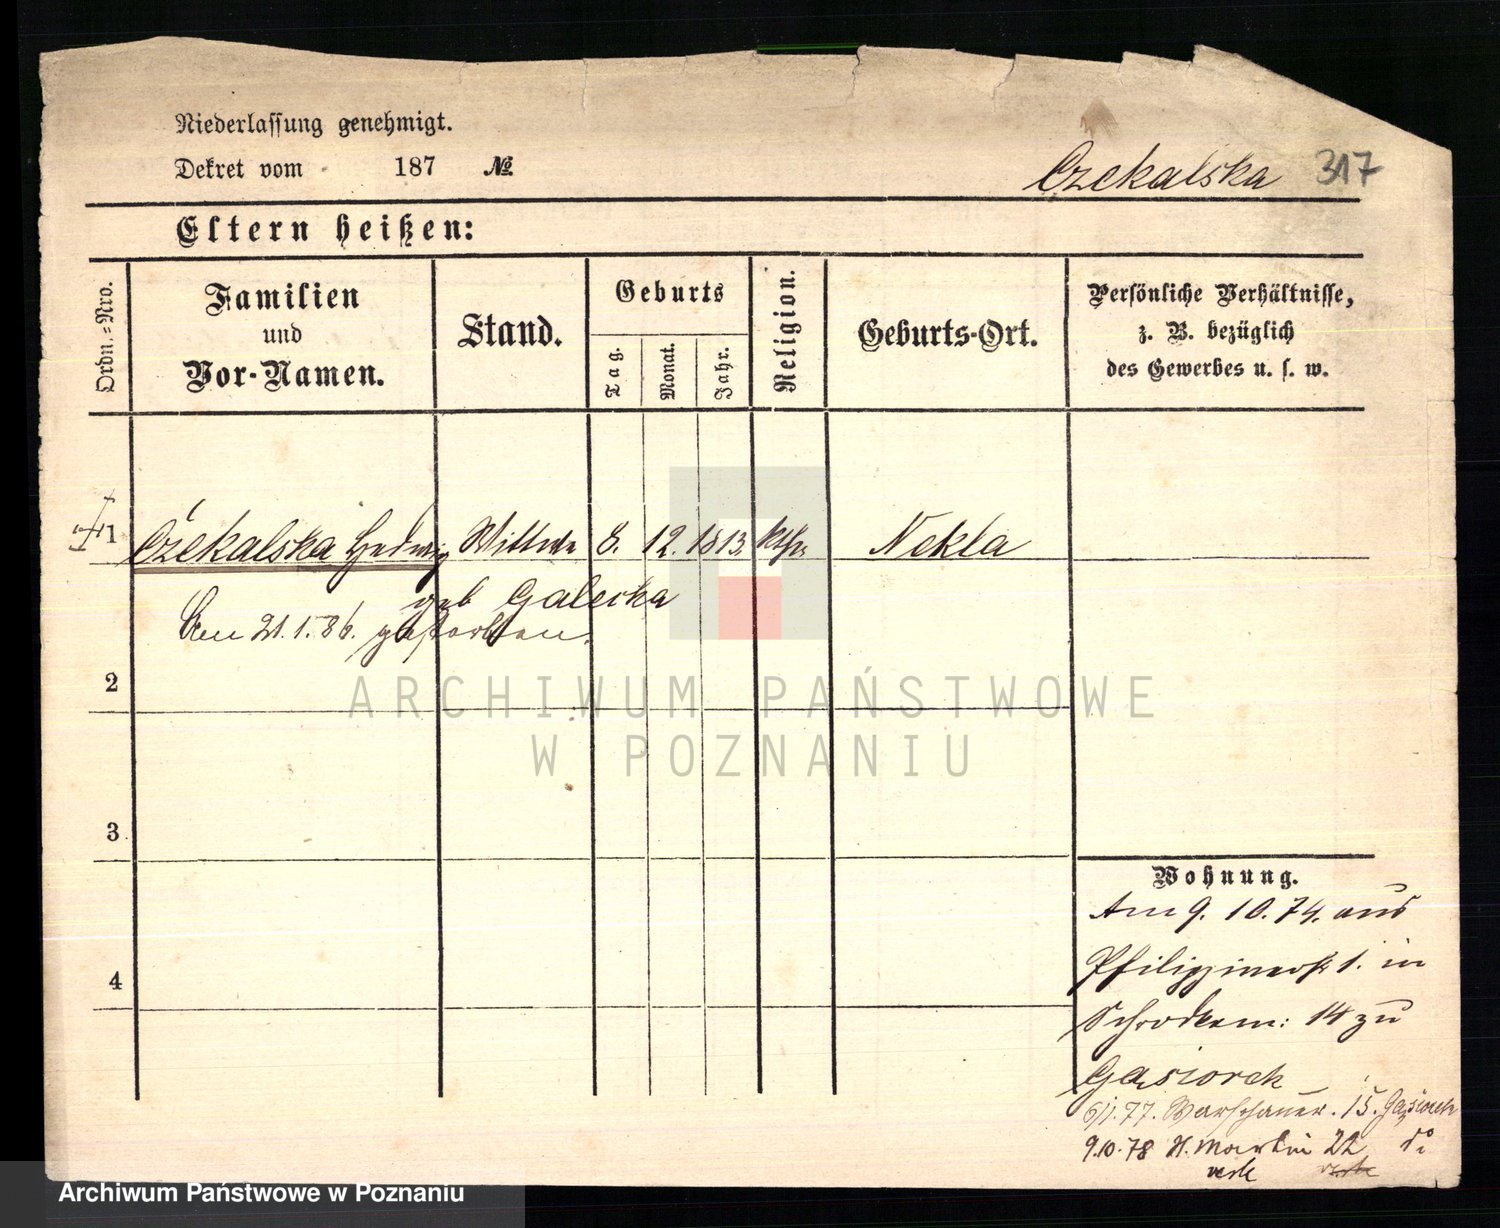 Niederlassung genehmigt.
Dekret vom 187 №
Czekalska 317
Eltern heißen:
Ordn.-Nro.
Familien und Vor-Namen.
Stand.
Geburts
Tag.
Monat.
Jahr.
Religion.
Geburts-Ort.
Persönliche Verhältnisse,
z. B. bezüglich
des Gewerbes u. s. w.
1 Czekalska Hedwig Wittwe 8. 12. 1813. kth. Nekla
geb Galecka
Den 21.1.86. gestorben.
2
ARCHIWUM PAŃSTWOWE
W POZNANIU
3
4
Wohnung.
Am 9. 10. 74. aus
Philippinerstr 1. in
Schrodkam: 14 zu
Gąsiorek
6/1.77. Warschauer. 15. Gąsiorek
9.10.78 St. Martin 22 do
Archiwum Państwowe w Poznaniu